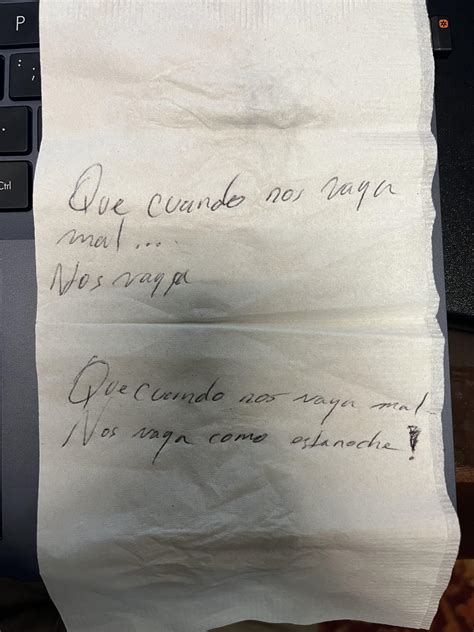 P
: ;
Ctrl
Que cuando nos vaya
mal...
Nos vaya
Que cuando nos vaya mal
Nos vaya como esta noche!